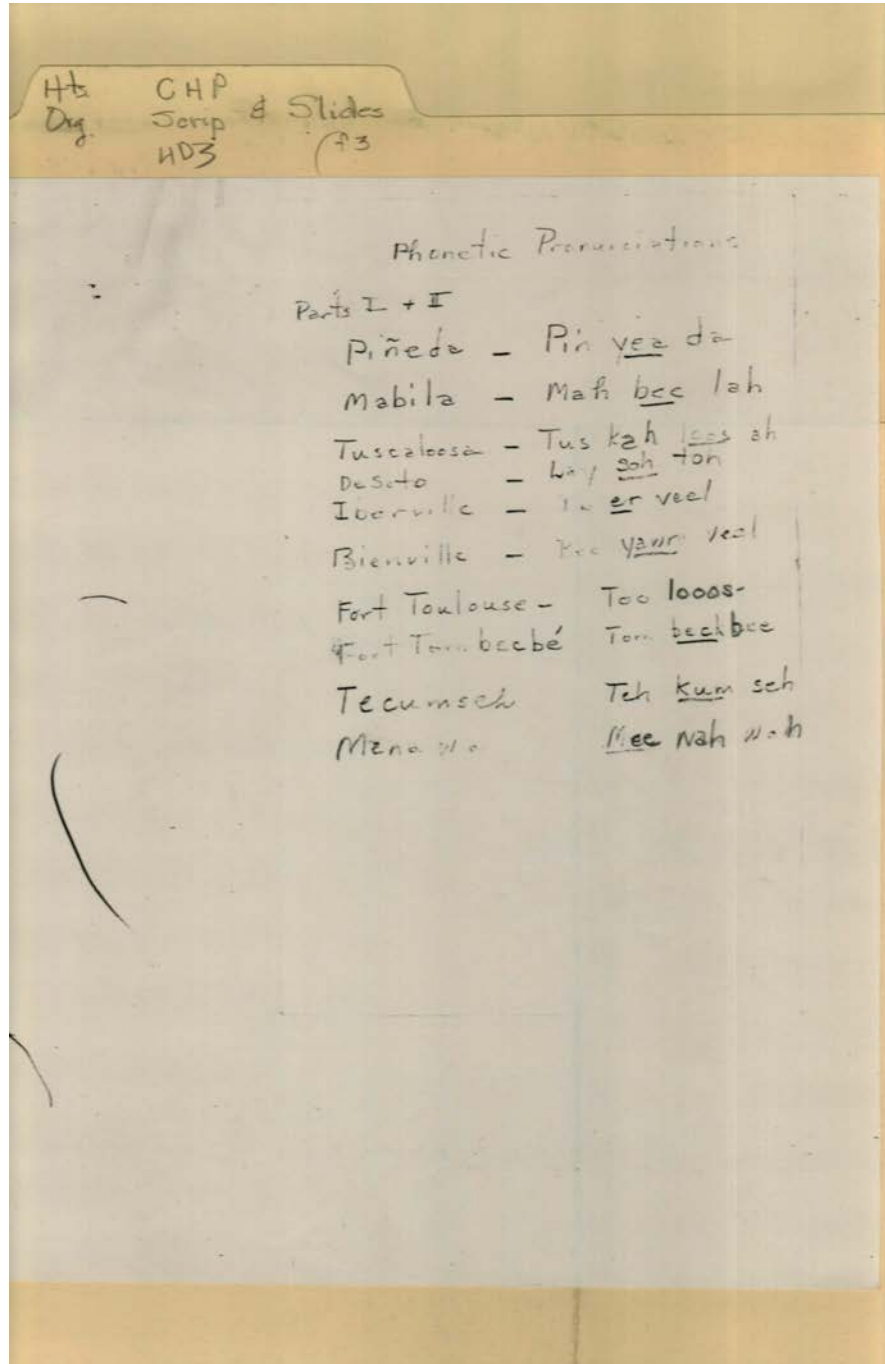 Hts CHP
Org. Scrip & Slides
HD3 (f3
Phonetic Pronunciations
Parts I + II
Piñeda - Pin yea da
Mabila - Mah bee lah
Tuscaloosa - Tus kah loos ah
DeSoto - soh
Iberville - er veel
Bienville - Bee yawn veel
Fort Toulouse - Too looos-
Fort Tombecbé Tom beckbee
Tecumseh Teh kum seh
Menawa Mee Nah wah